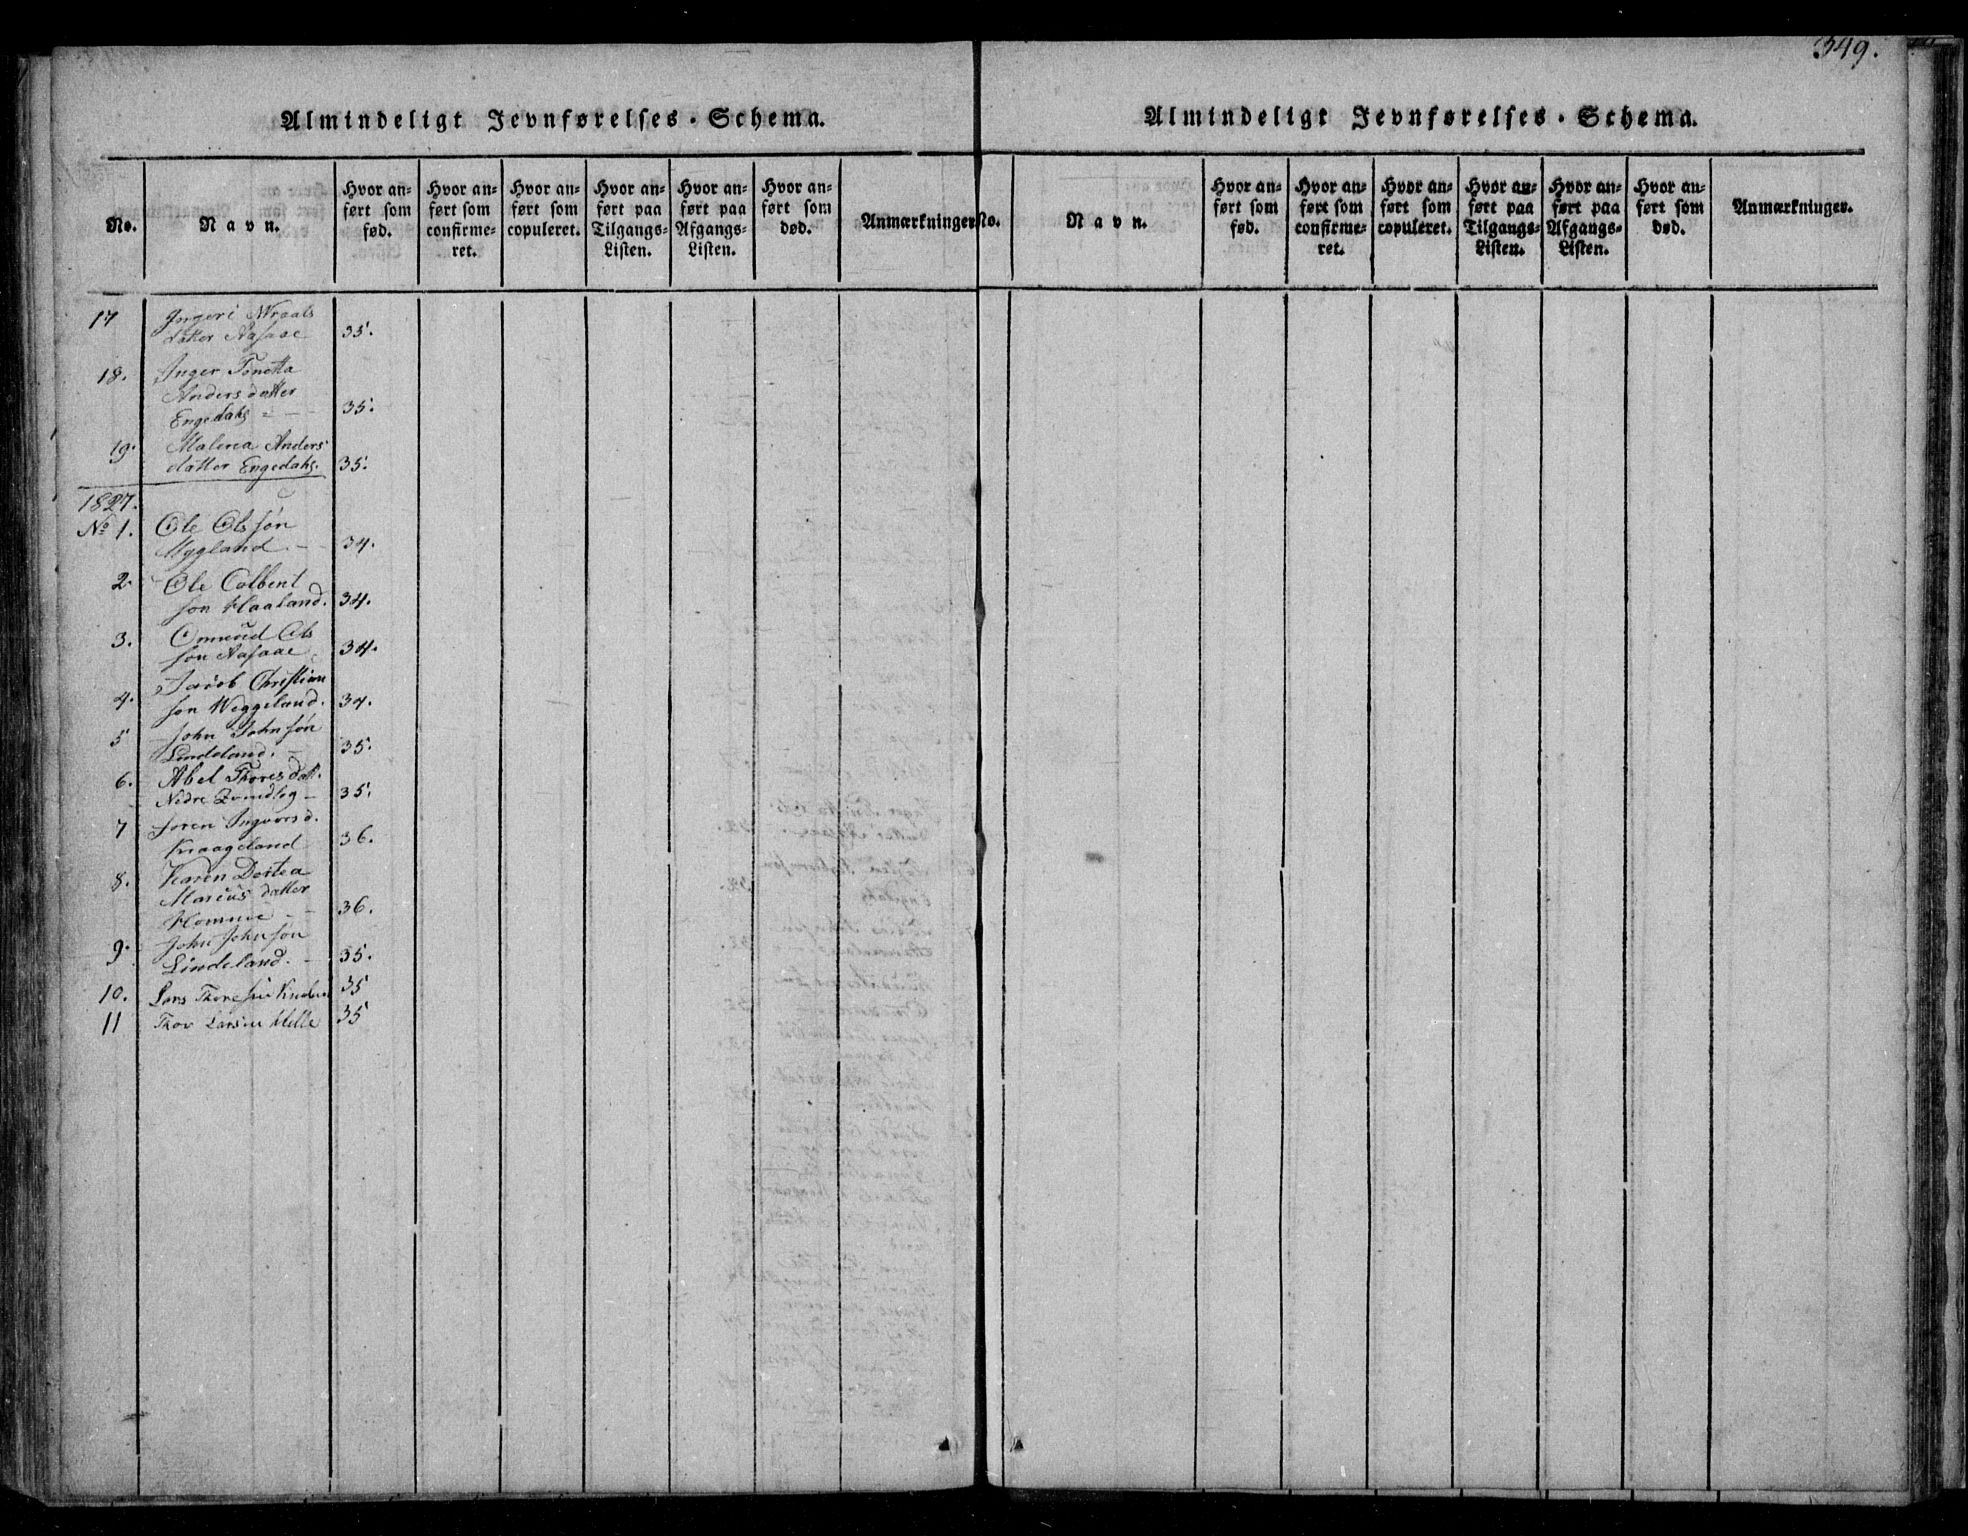 349.
Almindeligt Jevnførelses-Schema.
No.
Navn.
Hvor an-
ført som
fød.
Hvor an-
ført som
confirme-
ret.
Hvor an-
ført som
copuleret.
Hvor an-
ført paa
Tilgangs-
Listen.
Hvor an-
ført paa
Afgangs-
Listen.
Hvor an-
ført som
død.
Anmærkninger
17 Jngeri
datter Aasaae 35.
18. Inger Tonetta
Anders datter
Engedahl 35.
19. Malena Anders
datter Engedahl. 35.
1827.
No 1. Ole Olssøn
Mygland 34.
2. Ole Colbent
søn Haaland. 34.
3. Ommund Ols
søn Aasaae 34.
4. Jacob Christian
søn Weggeland. 34.
5 John Johnsøn
Lindeland. 35.
6. Abel Thores datt.
Nedre 35.
7 Søren Ingvors d.
Kraageland 36.
8. Karen Dortea
Marcus datter
Homme 36.
9. John Johnsøn
Lindeland. 35.
10. Lars Thoresen 35
11 Thor Larsen Melle 35
Almindeligt Jevnførelses-Schema.
No.
Navn.
Hvor an-
ført som
fød.
Hvor an-
ført som
confirme-
ret.
Hvor an-
ført som
copuleret.
Hvor an-
ført paa
Tilgangs-
Listen.
Hvor an-
ført paa
Afgangs-
Listen.
Hvor an-
ført som
død.
Anmærkninger.